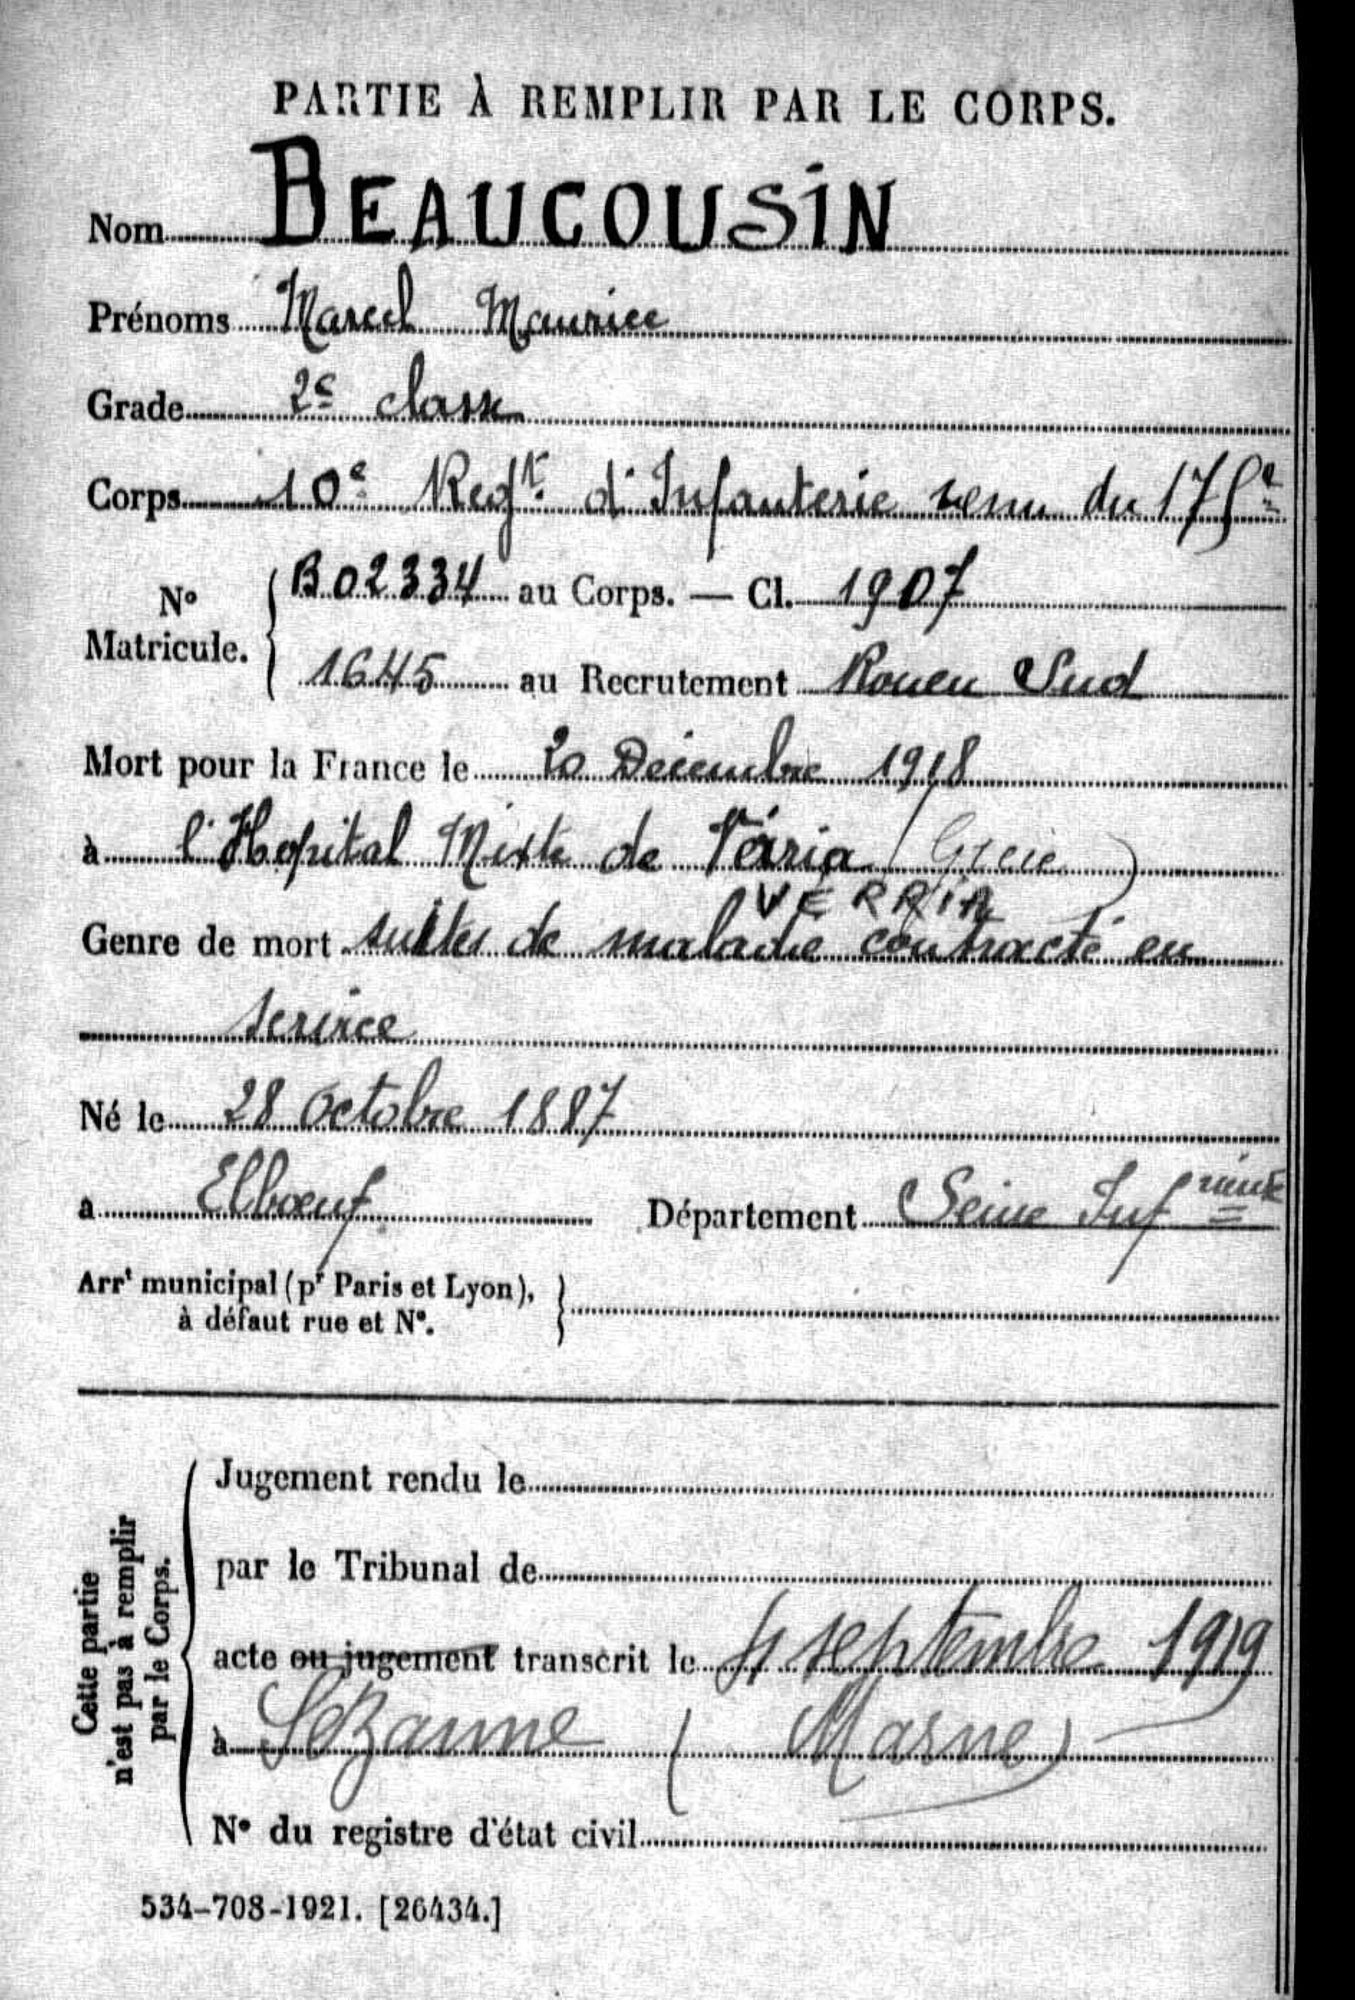 PARTIE À REMPLIR PAR LE CORPS.
Nom BEAUCOUSIN
Prénoms Marcel Maurice
Grade 2e classe
Corps 10e Regt. d'Infanterie venu du 175e
N° Matricule. B02334 au Corps. — Cl. 1907
1645 au Recrutement Rouen Sud
Mort pour la France le 20 Décembre 1918
à l'Hopital Mixte de Véiria (Grèce)
VERRIA
Genre de mort suites de maladie contracté en
service
Né le 28 octobre 1887
à Elbœuf Département Seine Infrieure
Arrt municipal (pr Paris et Lyon),
à défaut rue et N°.
Cette partie
n'est pas à remplir
par le Corps.
Jugement rendu le
par le Tribunal de
acte ou jugement transcrit le 4 septembre 1919
à Sézanne (Marne)
N° du registre d'état civil
534-708-1921. [26434.]